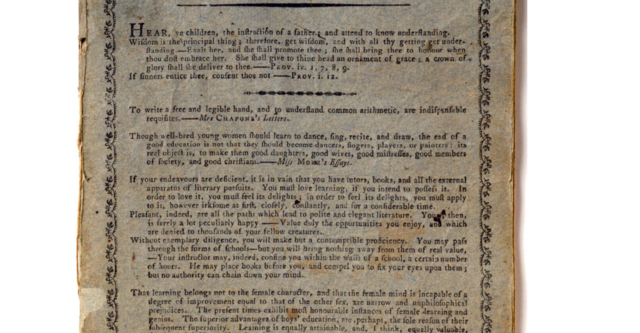 HEAR, ye children, the instruction of a father; and attend to know understanding.
Wisdom is the principal thing; therefore, get wisdom, and with all thy getting get under-
standing.——Exalt her, and she shall promote thee; she shall bring thee to honour when
thou dost embrace her. She shall give to thine head an ornament of grace; a crown of
glory shall she deliver to thee.——PROV. iv. 1. 7, 8, 9.
If sinners entice thee, consent thou not——PROV. i. 12.
To write a free and legible hand, and to understand common arithmetic, are indispensable
requisites.——Mrs CHAPONE's Letters.
Though well-bred young women should learn to dance, sing, recite, and draw, the end of a
good education is not that they should become dancers, singers, players, or painters: its
real object is, to make them good daughters, good wives, good mistresses, good members
of society, and good christians.——Miss MORE's Essays.
If your endeavours are deficient, it is in vain that you have tutors, books, and all the external
apparatus of literary pursuits. You must love learning, if you intend to possess it. In
order to love it, you must feel its delights; in order to feel its delights, you must apply
to it, however irksome at first, closely, constantly, and for a considerable time.
Pleasant, indeed, are all the paths which lead to polite and elegant literature. Yours then,
is surely a lot peculiarly happy——Value duly the opportunities you enjoy, and which
are denied to thousands of your fellow creatures.
Without exemplary diligence, you will make but a contemptible proficiency. You may pass
through the forms of schools—but you will bring nothing away from them of real value,
——Your instructor may, indeed, confine you within the walls of a school, a certain number
of hours. He may place books before you, and compel you to fix your eyes upon them;
but no authority can chain down your mind.
That learning belongs not to the female character, and that the female mind is incapable of a
degree of improvement equal to that of the other sex, are narrow and unphilosophical
prejudices. The present times exhibit most honourable instances of female learning and
genius. The superior advantages of boys' education, are, perhaps, the sole reason of their
subsequent superiority. Learning is equally attainable, and, I think, equally valuable,